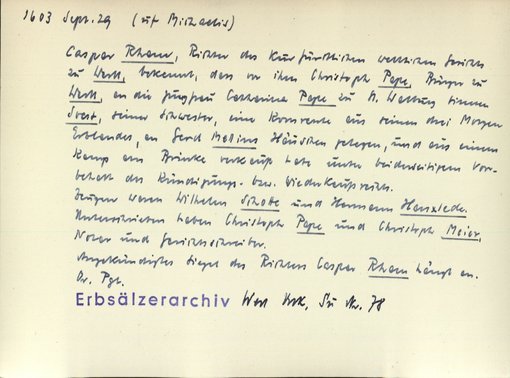 1603 Sept. 29 (uf Michaelis)
Caspar Rham, Richter des kurfürstlichen weltlichen Gerichts
zu Werl, bekennt, dass vor ihm Christoph Pape, Bürger zu
Werl, an die Jungfrau Catharina Pape zu St. Walburg binnen
Soest, seiner Schwester, eine Kornrente aus seinen drei Morgen
Erblandes, an Gerd Mellins Häuschen gelegen, und aus einem
Kamp am Brinke verkauft habe unter beiderseitigem Vor-
behalt des Kündigungs- bzw. Wiederkaufsrechts.
Zeugen waren Wilhelm Schotte und Hermann
Unterschrieben haben Christoph Pape und Christoph Meier,
Notar und Gerichtsschreiber.
Angekündigtes Siegel des Richters Caspar Rham hängt an.
Or. Pgt.
Erbsälzerarchiv Werl Urk, Nr. 78